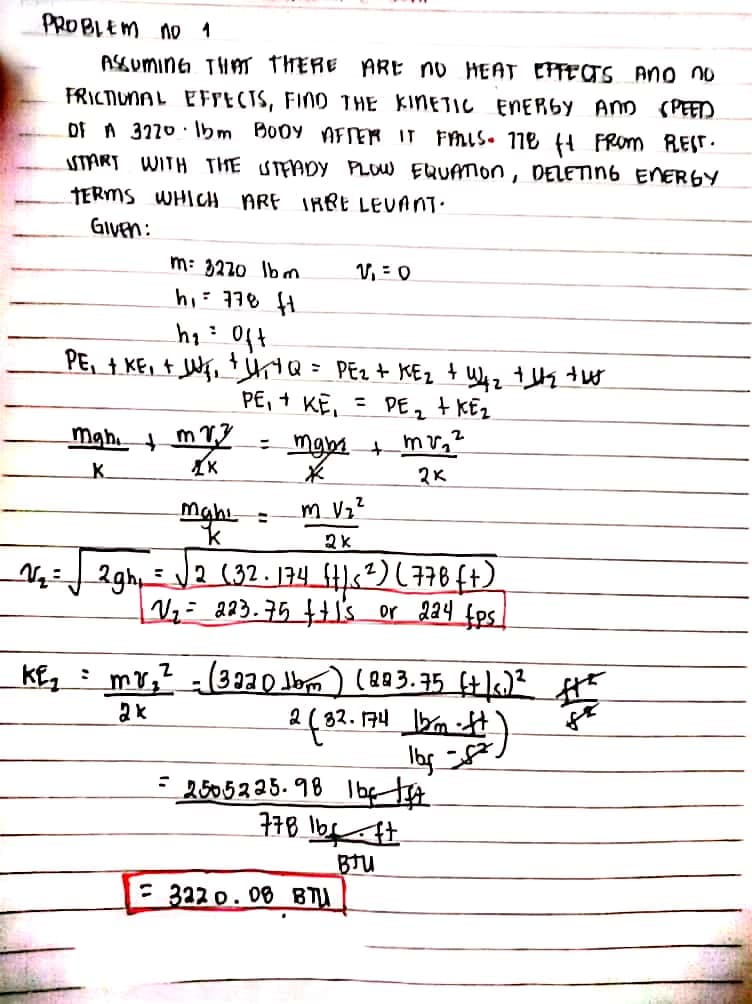 PROBLEM no 1
ASSUMING THAT THERE ARE no HEAT EFFECTS AND no
FRICTIONAL EFFECTS, FIND THE KINETIC ENERGY AND SPEED
OF A 3220. lbm BODY AFTER IT FALLS. 778 ft FROM REST.
START WITH THE STEADY FLOW EQUATION, DELETING ENERGY
TERMS WHICH ARE IRRELEVANT.
GIVEN:
m: 3220 lbm V₁ = 0
h₁ = 778 ft
h₂ = 0ft
PE₁ + KE₁ + Wf₁ + U₁ + Q = PE₂ + KE₂ + Wf₂ + U₂ + W
PE₁ + KE₁ = PE₂ + KE₂
mgh₁/K + mv₁²/2K = mgh₂/K + mv₂²/2K
mgh₁/k = mV₂²/2k
V₂ = √2gh₁ = √2 (32.174 ft/s²)(778 ft)
V₂ = 223.75 ft/s or 224 fps
KE₂ = mv₂²/2k = (3220 lbm) (223.75 ft/s)² ft²/s² / 2 (32.174 lbm-ft/lbf-s²)
= 2505225.98 lbf-ft / 778 lbf.ft/BTU
= 3220.08 BTU